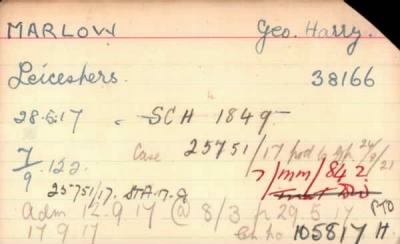 MARLOW Geo. Harry.
Leicesters. 38166
28.6.17 SCH 1849
7/9 122. Case 25751/17
7/MM/842
25751/17.
Adm 12.9.17 @ 8/3 fr 29.5.17. PTO
17 9 17 105817 H.